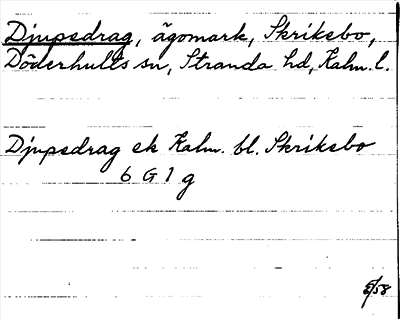 Djupsdrag, ägomark, Skriksbo,
Döderhults sn, Stranda hd, Kalm. l.
Djupsdrag ek Kalm. bl. Skriksbo
6 G 1 g
5/58